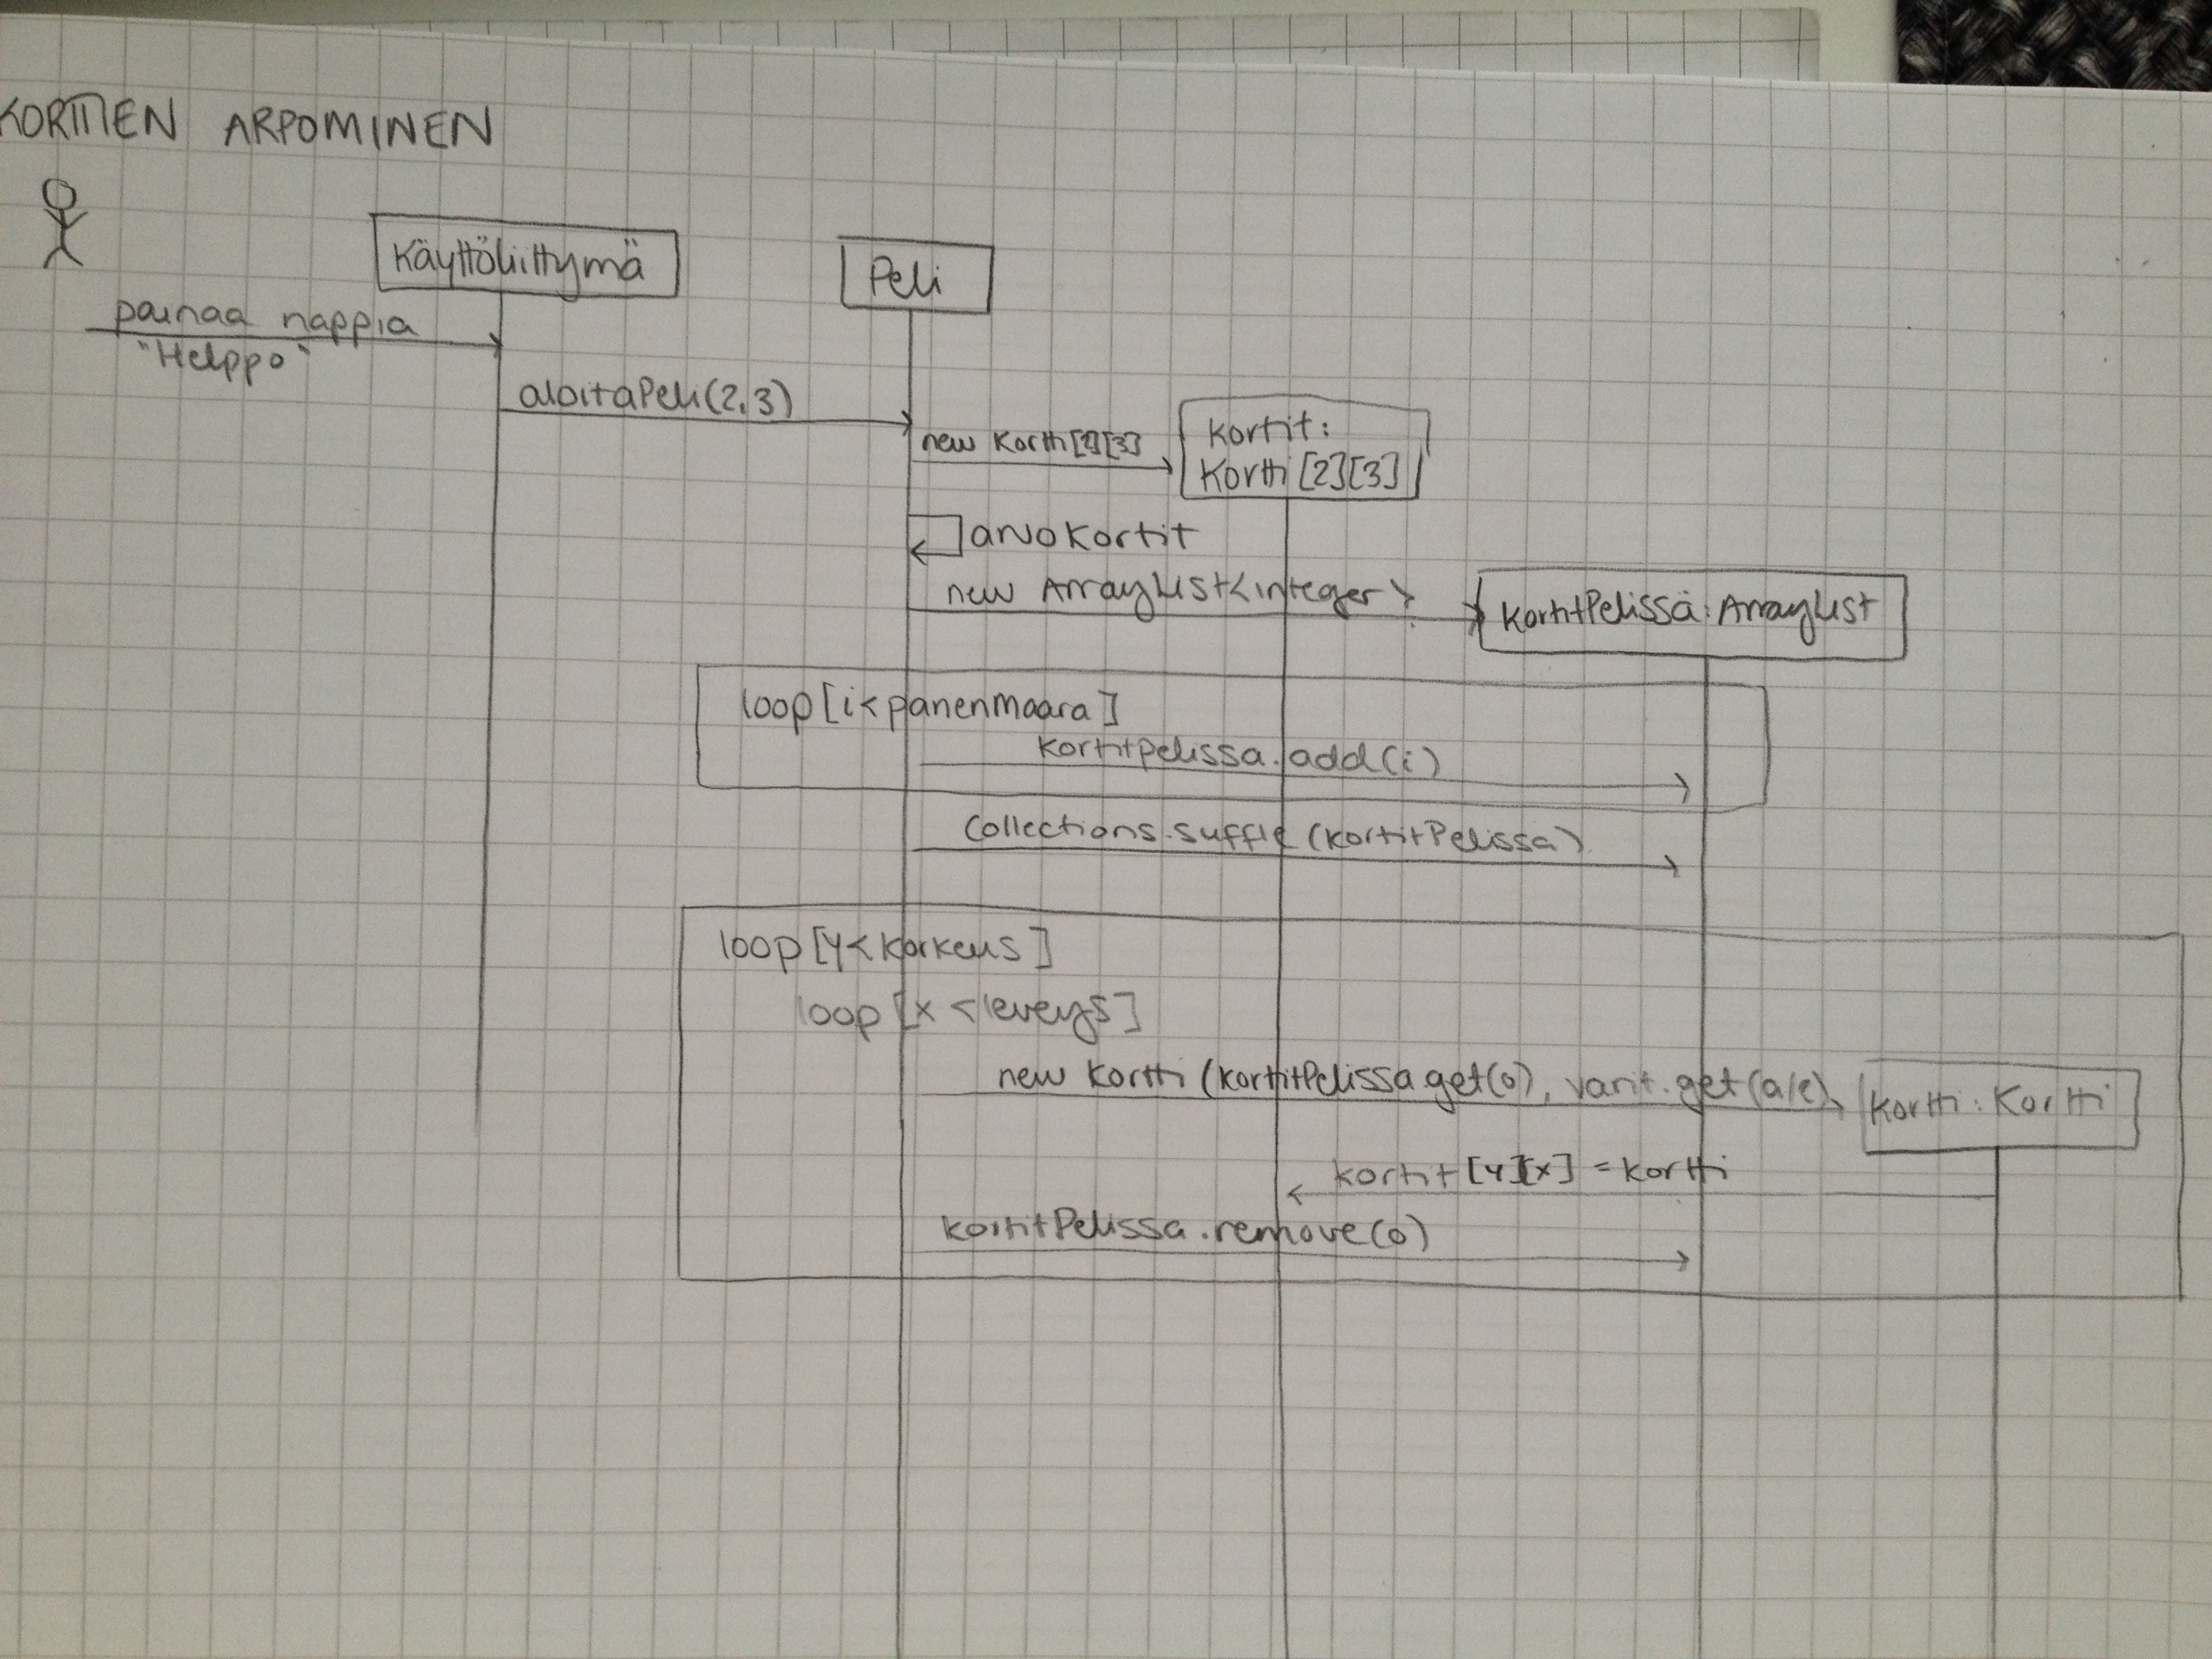 KORTTIEN ARPOMINEN
Käyttöliittymä
Peli
painaa nappia
"Helppo"
aloitaPeli(2,3)
new Kortti[2][3]
kortit:
Kortti[2][3]
arvoKortit
new ArrayList<Integer>
KortitPelissä:ArrayList
loop[i<parienmaara]
kortitpelissa.add(i)
Collections.suffle(kortitPelissa)
loop[y<korkeus]
loop[x<leveys]
new Kortti(kortitPelissa.get(0), varit.get(a/c)
Kortti:Kortti
kortit[y][x] = kortti
kortitPelissa.remove(0)